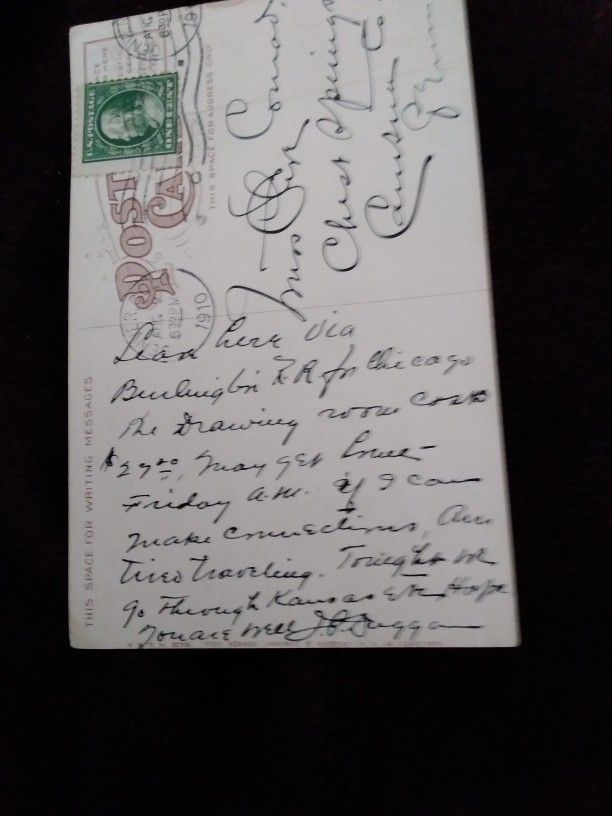 POST CARD
THIS SPACE FOR ADDRESS ONLY
U.S. POSTAGE
ONE CENT
AUG
630 PM
1910
Miss
Conrad,
Chest Springs
Cambria Co
Penn
THIS SPACE FOR WRITING MESSAGES
Leave here via
Burlington R R for Chicago
The Drawing room cost
may get home
Friday a.m. if I can
make connections, Am
tired traveling. Tonight we
go through Kansas etc Hope
you are well J. Duggan